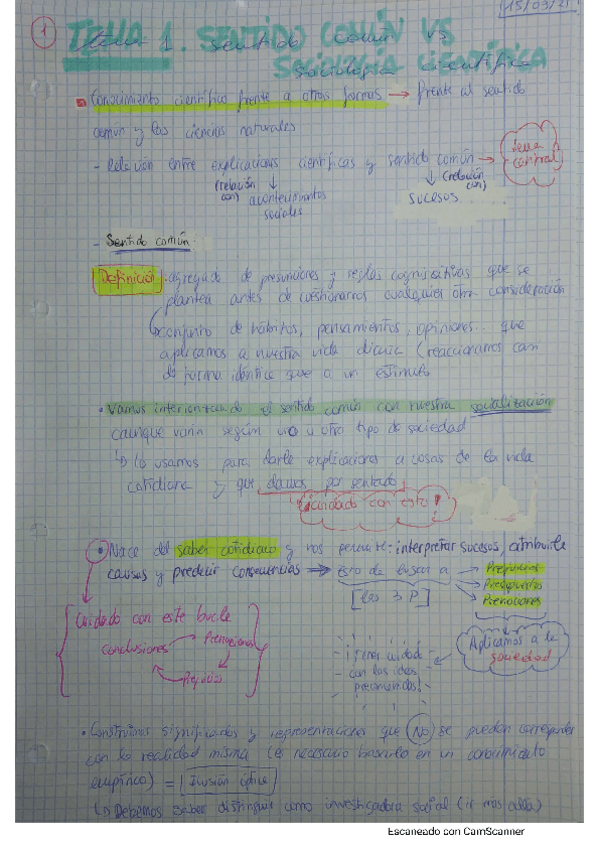 15/09/21
1
TEMA 1. SENTIDO COMÚN VS
SOCIOLOGIA CIENTÍFICA
Conocimiento científico frente a otras formas → frente al sentido
común y las ciencias naturales
- Relación entre explicaciones científicas y sentido común → tema central
(relación con) acontecimientos sociales
(relación con) sucesos
- Sentido común:
Definición: agregado de presunciones y reglas cognoscitivas que se
plantea antes de cuestionarnos cualquier otra consideración
conjunto de hábitos, pensamientos, opiniones... que
aplicamos a nuestra vida diaria (reaccionamos casi
de forma idéntica que a un estímulo
• Vamos interiorizando el sentido común con nuestra socialización
(aunque varía según uno u otro tipo de sociedad
↳ Lo usamos para darle explicaciones a cosas de la vida
cotidiana y que damos por sentado
¡cuidado con esto!
• Nace del saber cotidiano y nos permite: interpretar sucesos, atribuirle
causas y predecir consecuencias → esto da lugar a → Prejuicios
Presupuestos
Prenociones
[Las 3 P]
Cuidado con este bucle
conclusiones → Prenociones
Prejuicios
Aplicamos a la
sociedad
¡Tener cuidado
con las ideas
preconcebidas!
• Construimos significados y representaciones que (No) se puedan corresponder
con la realidad misma (es necesario basarlo en un conocimiento
empírico) = Ilusión óptica
↳ Debemos saber distinguir como investigadora social (ir más allá)
Escaneado con CamScanner